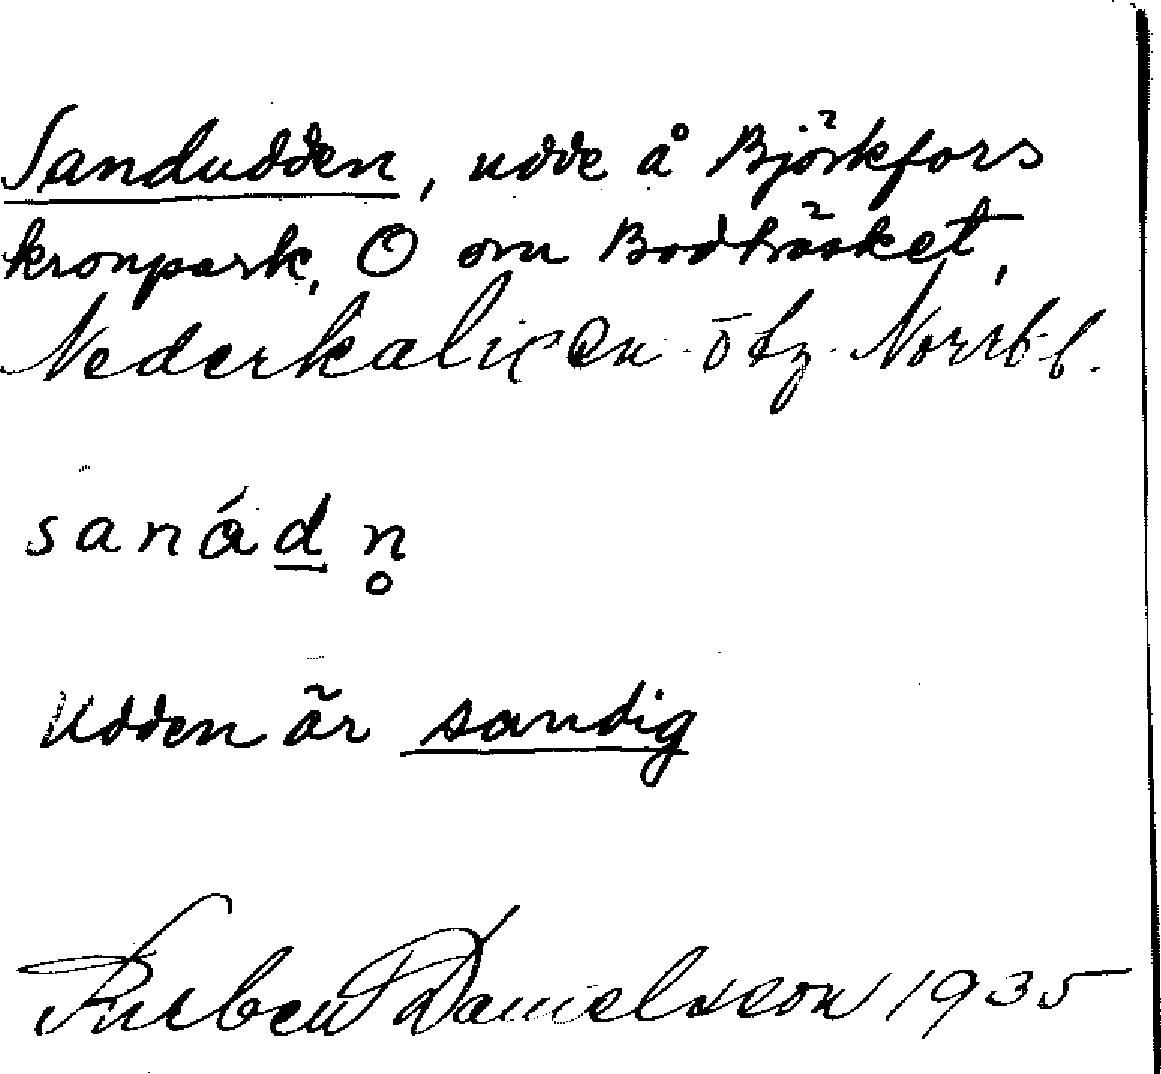 Sandudden, udde å Björkfors
kronpark, O om Bodträsket,
Nederkalix sn ö bz. Norrb. l.
sanád n̥
Udden är sandig
Torben Danielsson 1935